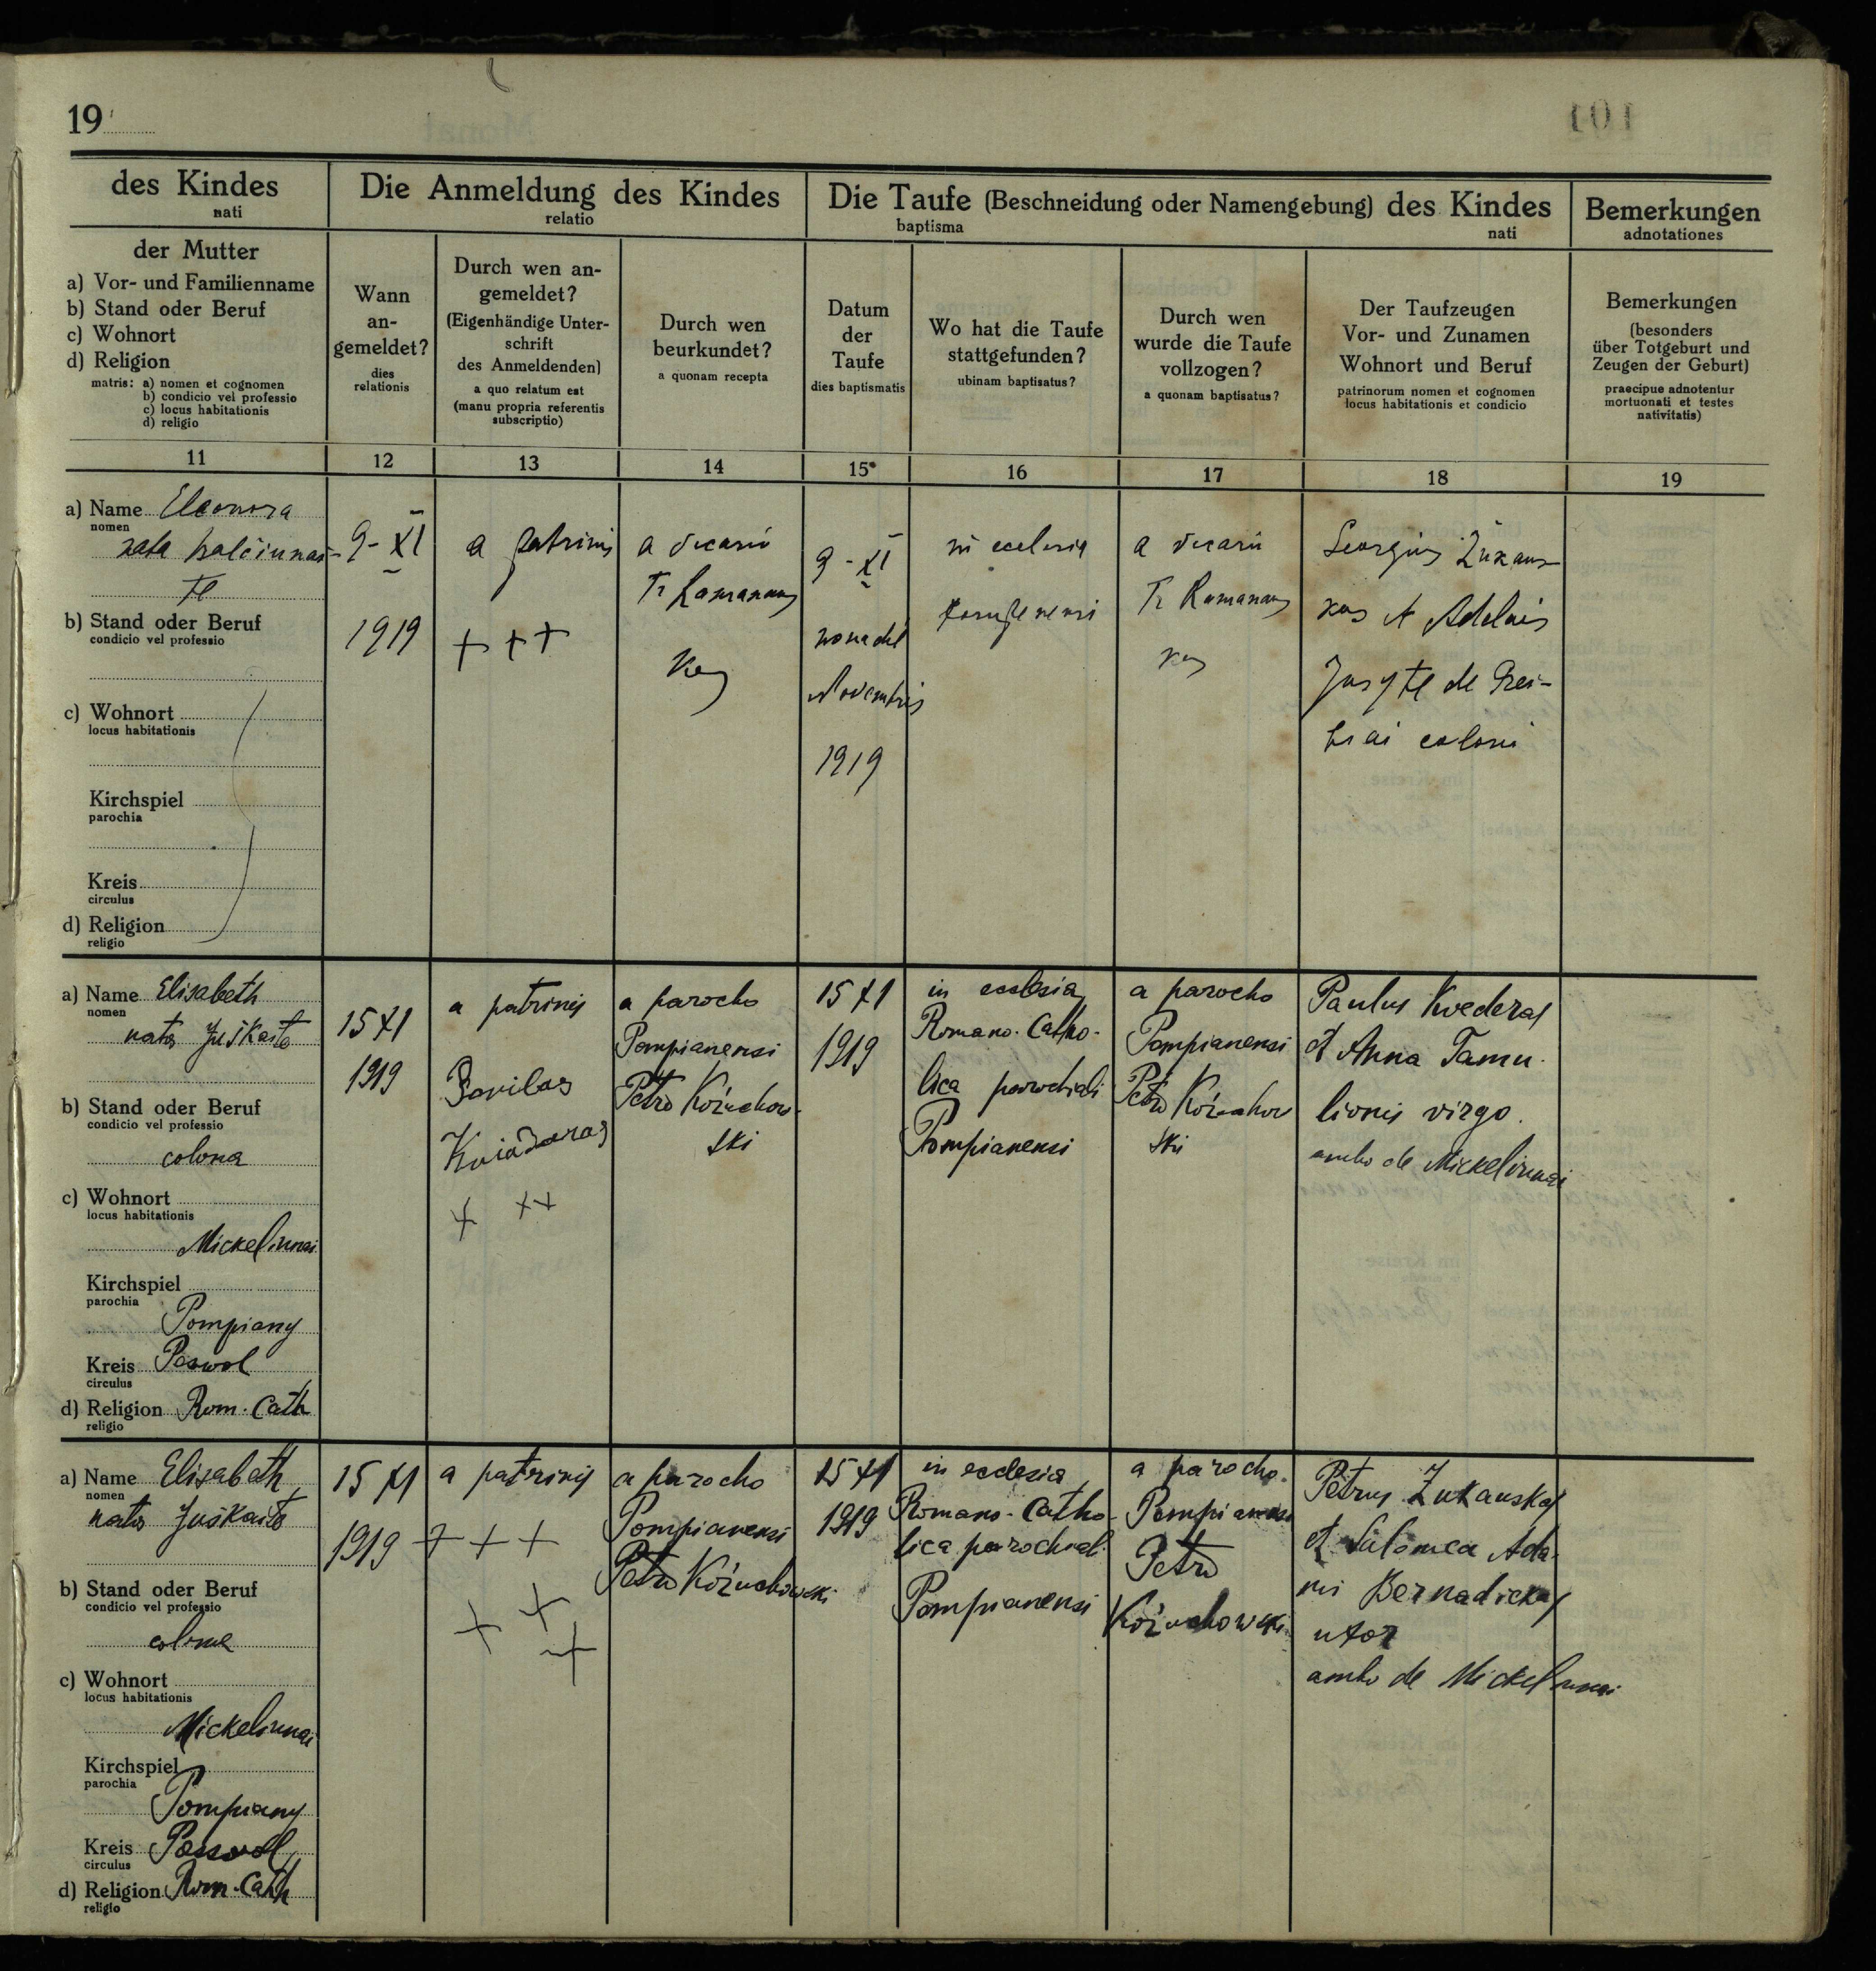 19
101
des Kindes
nati
Die Anmeldung des Kindes
relatio
Die Taufe (Beschneidung oder Namengebung) des Kindes
baptisma
nati
Bemerkungen
adnotationes
der Mutter
a) Vor- und Familienname
b) Stand oder Beruf
c) Wohnort
d) Religion
matris: a) nomen et cognomen
b) condicio vel professio
c) locus habitationis
d) religio
Wann
an-
gemeldet?
dies
relationis
Durch wen an-
gemeldet?
(Eigenhändige Unter-
schrift
des Anmeldenden)
a quo relatum est
(manu propria referentis
subscriptio)
Durch wen
beurkundet?
a quonam recepta
Datum
der
Taufe
dies baptismatis
Wo hat die Taufe
stattgefunden?
ubinam baptisatus?
Durch wen
wurde die Taufe
vollzogen?
a quonam baptisatus?
Der Taufzeugen
Vor- und Zunamen
Wohnort und Beruf
patrinorum nomen et cognomen
locus habitationis et condicio
Bemerkungen
(besonders
über Totgeburt und
Zeugen der Geburt)
praecipue adnotentur
mortuonati et testes
nativitatis)
11
12
13
14
15
16
17
18
19
a) Name Eleonora
nomen
nata
te
b) Stand oder Beruf
condicio vel professio
c) Wohnort
locus habitationis
Kirchspiel
parochia
Kreis
circulus
d) Religion
religio
9-XI
1919
a patrinis
+ + +
a vicario
kas
9-XI
nona die
Novembris
1919
in ecclesia
a vicario
kas
Georgius Žukaus-
kas et Adelais
Jusyte de
coloni
a) Name Elisabeth
nomen
nata Juškaite
b) Stand oder Beruf
condicio vel professio
colona
c) Wohnort
locus habitationis
Mickeliunai
Kirchspiel
parochia
Pompiany
Kreis Poswol
circulus
d) Religion Rom. Cath
religio
15 XI
1919
a patrinis
Povilas
+ ++
a parocho
Pompianensi
Petro Kożuchow-
ski
15 XI
1919
in ecclesia
Romano-Catho-
lica parochiali
Pompianensi
a parocho
Pompianensi
Petro Kożuchow
ski
Paulus Kvederas
et Anna Tamu-
lionis virgo.
ambo de Mickeliunai
a) Name Elisabeth
nomen
nata Juškaite
b) Stand oder Beruf
condicio vel professio
colonae
c) Wohnort
locus habitationis
Mickeliunai
Kirchspiel
parochia
Pompiany
Kreis Poswol
circulus
d) Religion Rom. Cath
religio
15 XI
1919
a patrinis
+ + +
+ +
+
a parocho
Pompianensi
Petro Kożuchowski
15 XI
1919
in ecclesia
Romano-Catho-
lica parochiali
Pompianensi
a parocho
Pompianensi
Petro
Kożuchowski
Petrus Žukauskas
et Salomea Ada-
mi Bernadickas
uxor
ambo de Mickeliunai